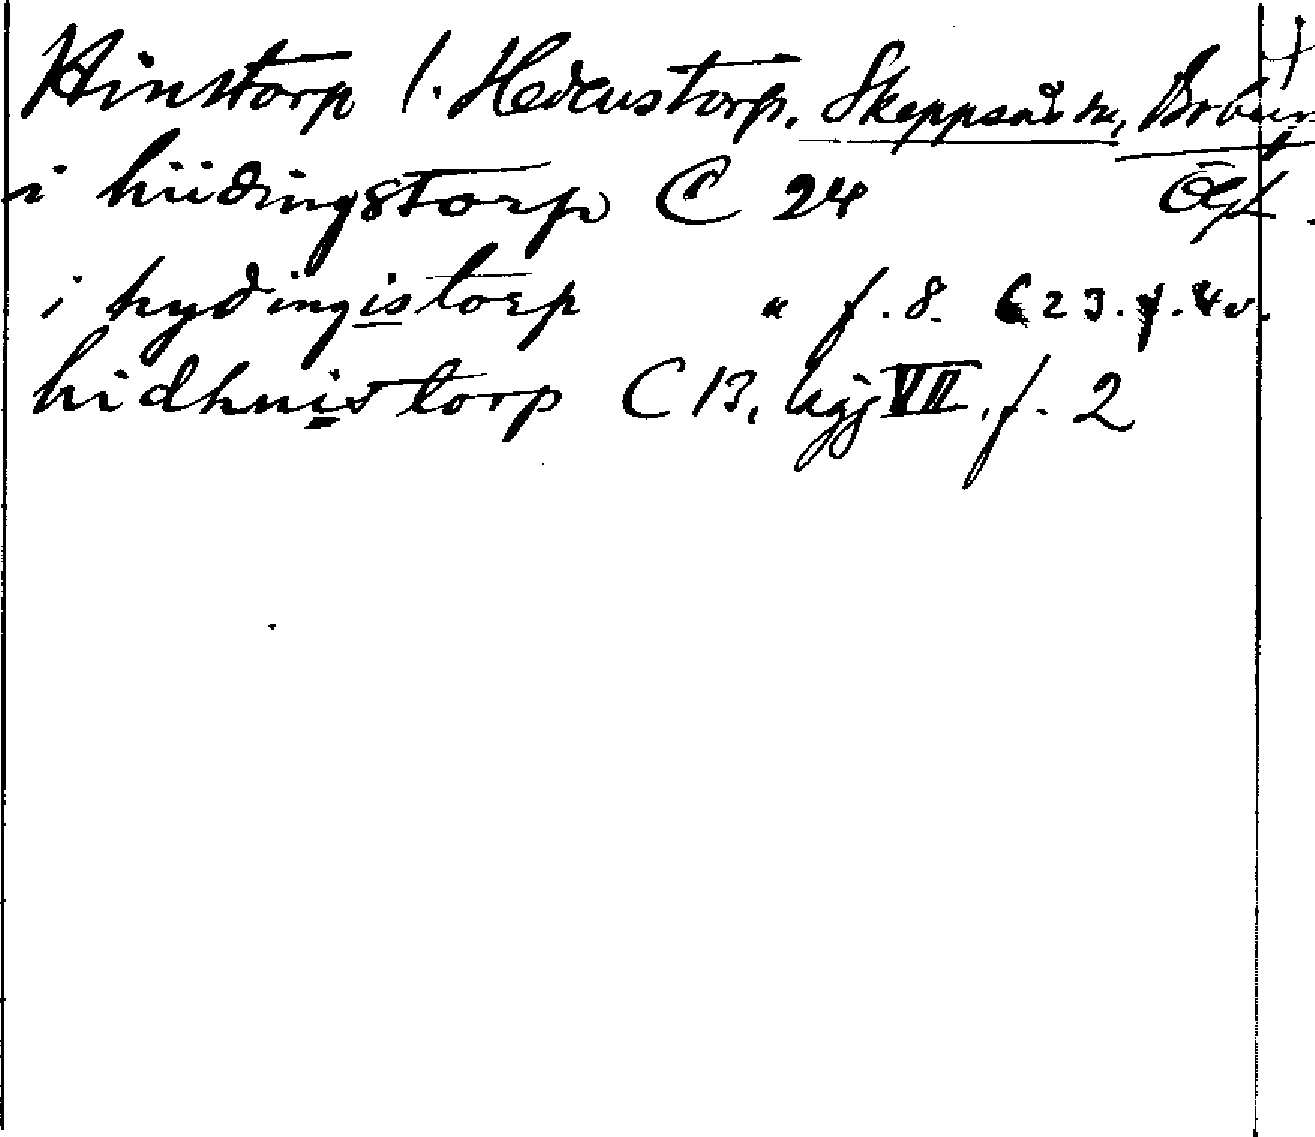 Hinstorp l. Hedenstorp. Skeppsås sn, Boberg
i hiidingstorp C 24 Ögl.
i hydingistorp " f. 8. C 23. f. 4 v.
hidhnistorp C 13, lägg VII. f. 2